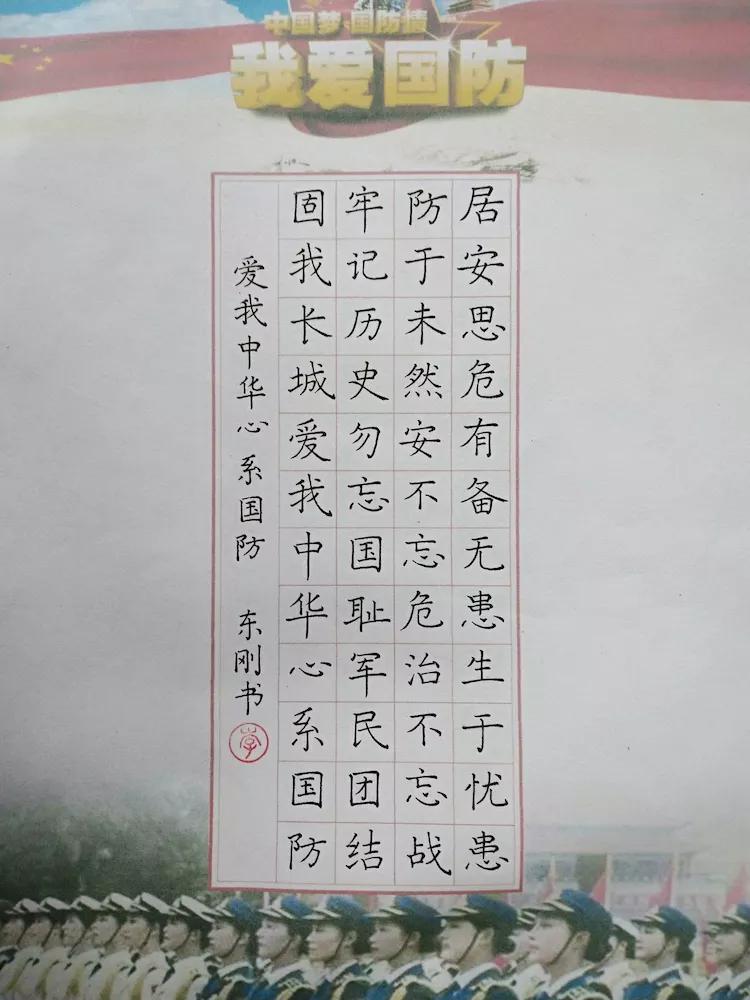 中国梦·国防情
我爱国防
居安思危有备无患生于忧患
防于未然安不忘危治不忘战
牢记历史勿忘国耻军民团结
固我长城爱我中华心系国防
爱我中华心系国防 东刚书